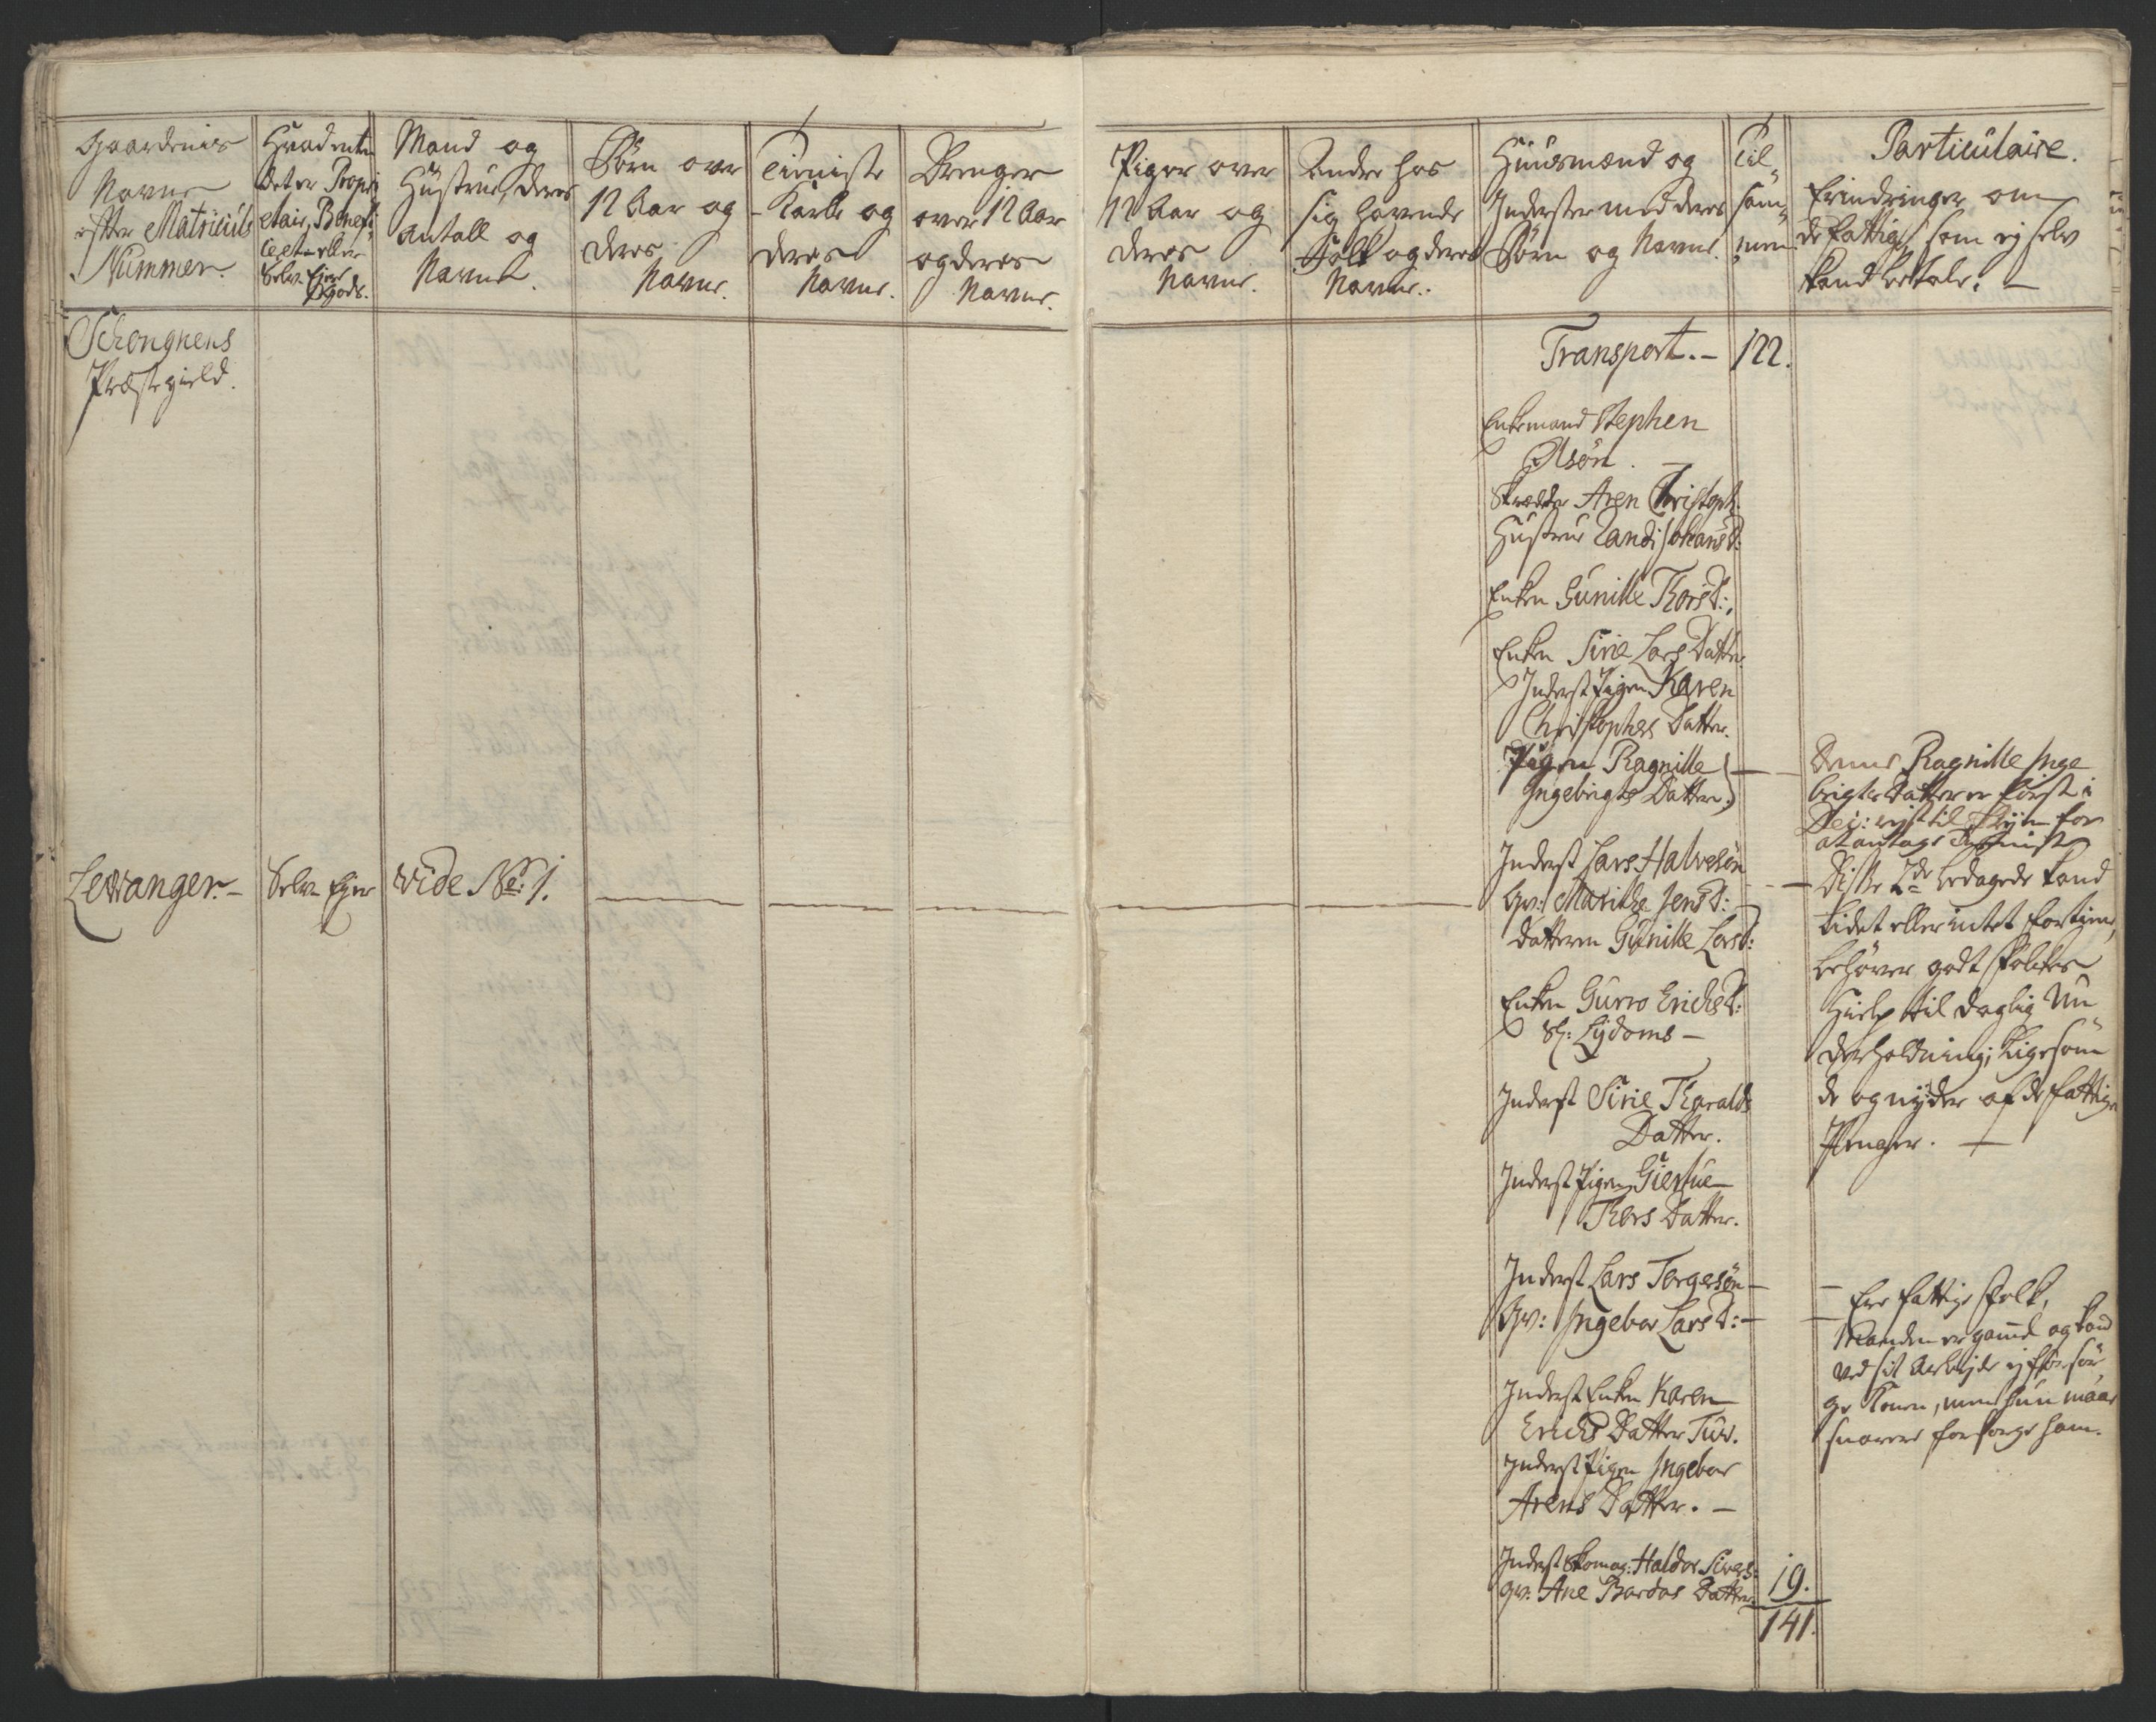 Gaardenes
Navne
efter Matriculs
Nummer.
Hvad enten
det er Propri
etair, Benefi
ceret eller
Selv Ejer
Gods.
Mand og
Hustrue, deres
Antall og
Navne.
Börn over
12 Aar og
deres
Navne.
Tieniste
Karle og
deres
Navne.
Drenger
over 12 Aar
og deres
Navne.
Piger over
12 Aar og
deres
Navne.
Andre hos
sig havende
Folk og deres
Navne.
Huusmænd og
Inderster med deres
Börn og Navne.
Til
sam
men
Particulaire.
Erindringer om
de fattige som ej selv
kand betale. –
Schongnens
Præstegield.
Transport. – 122.
Enkemand Stephen
Olsön. –
Skrædder Aren Christoph.
Hustrue Randi Johans D:
Enken Gunille Thors D:
Enken Sirie Lars Datter
Inderst Pigen Karen
Christophers Datter.
Pigen Ragnille
Ingebrigts Datter.
Denne Ragnille Inge
brigts Datter er först i
Dec: rejst til Byen for
at antage Tieniste
Levanger. – Selv Ejer vide No: 1.
Inderst Lars Halvesön
Qv: Marithe Jens D:
Datteren Gunille Lars D:
Disse 2de bedagede kand
lidet eller intet fortiene,
behöver godt Folkes
Hielp til daglig Un
derholdning; ligesom
de og nyder af de fattiges
Penger. –
Enken Gurro Erichs D:
Sl: Lydoms –
Inderst Sirie Haralds
Datter.
Inderst Pigen Giertrue
Thors Datter.
Inderst Lars Torgersön –
Qv: Ingebor Lars D: –
– Ere fattige Folk,
Manden er gaml og kand
ved sit Arbejde ej forsör
ge Konen, men hun maae
snarere forsörge ham.
Inderst Enken Karen
Erichs Datter Tuv.
Inderst Pigen Ingebor
Arens Datter. –
Inderst Skomag: Haldor Sivers:
Qv: Ane Bardos Datter
19.
141.